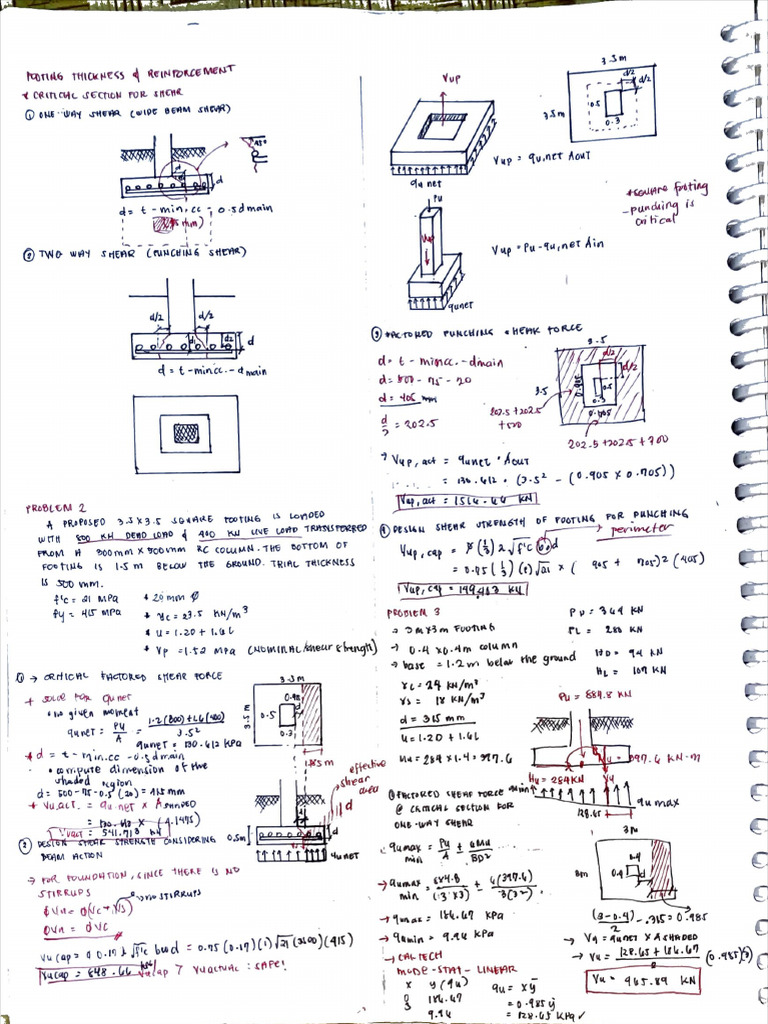 FOOTING THICKNESS & REINFORCEMENT
* CRITICAL SECTION FOR SHEAR
① ONE-WAY SHEAR (WIDE BEAM SHEAR)
45°
d
d
d = t - min.cc - 0.5dmain
② TWO WAY SHEAR (PUNCHING SHEAR)
d/2
d/2
d
d = t - min.cc. - dmain
PROBLEM 2
A PROPOSED 3.5 x 3.5 SQUARE FOOTING IS LOADED
WITH 800 KN DEAD LOAD & 400 KN LIVE LOAD TRANSFERRED
FROM A 300mm x 500mm RC COLUMN. THE BOTTOM OF
FOOTING IS 1.5 m BELOW THE GROUND. TRIAL THICKNESS
IS 500 mm.
f'c = 21 MPa * 20mm Ø
fy = 415 MPa * γc = 23.5 KN/m³
* U = 1.2D + 1.6L
* Vp = 1.52 MPa (NOMINAL/shear strength)
① → CRITICAL FACTORED SHEAR FORCE
* SOLVE FOR qunet
• no given moment
qunet = Pu/A = 1.2(800)+1.6(400) / 3.5²
qunet = 130.612 kPa
* d = t - min.cc - 0.5dmain
• compute dimension of the
shaded region
d = 500 - 75 - 0.5(20) = 415 mm
* Vu.act. = qu net x ASHADED
Vuact = 541.713 kN
3.5 m
3.5 m
0.5
0.3
d
effective
shear
area
d
0.5m
d
qunet
② DESIGN SHEAR STRENGTH CONSIDERING
BEAM ACTION
→ FOR FOUNDATION, SINCE THERE IS NO
STIRRUPS
no STIRRUPS
ϕVn = ϕ(Vc + Vs)
ϕVn = ϕVc
Vucap = ϕ 0.17 λ √f'c bwd = 0.75 (0.17)(1)√21 (3500)(415)
Vucap > VUACTUAL : SAFE!
Vup
3.5 m
d/2
d/2
3.5m
0.5
0.3
Vup = qu,net AOUT
qu net
* square footing
- punching is
critical
Pu
Vup
Vup = Pu - qu,net Ain
qunet
③ FACTORED PUNCHING SHEAR FORCE
d = t - min.cc. - dmain
d = 500 - 75 - 20
d = 405 mm
d/2 = 202.5
3.5
d/2
d/2
3.5
0.5
0.3
202.5 + 202.5
+ 500
202.5 + 202.5 + 300
→ Vup,act = qunet · AOUT
= 130.612 · (3.5² - (0.905 x 0.705))
④ DESIGN SHEAR STRENGTH OF FOOTING FOR PUNCHING
perimeter
Vup,cap = ϕ (1/3) λ √f'c bo d
= 0.75 (1/3) (1) √21 x ( 905 + 705) 2 (405)
PROBLEM 3
→ 3m x 3m FOOTING
→ 0.4 x 0.4m column
→ base = 1.2 m below the ground
γc = 24 KN/m³
γs = 18 KN/m³
d = 315 mm
U = 1.2D + 1.6L
PD = 364 KN
PL = 280 KN
HL = 109 KN
Pu = 884.8 KN
Hu = 284 KN
128.65
qu max
① FACTORED SHEAR FORCE
@ CRITICAL SECTION FOR
ONE-WAY SHEAR
qumax
min = Pu/A ± 6Mu/BD²
→ qmax = 186.67 kPa
→ qumin = 9.94 kPa
→ CALTECH
MODE-STAT-LINEAR
x y (qu)
0 186.67
3 9.94
qu = xŷ
= 0.985ŷ
= 128.65 kPa ✓
3m
3m
0.4
0.4
d
(3-0.4)/2 - .315 = 0.985
→ Vu = qunet x ASHADED
→ Vu = 128.65 + 186.67 / 2 (0.985)(3)
Vu = 465.89 KN